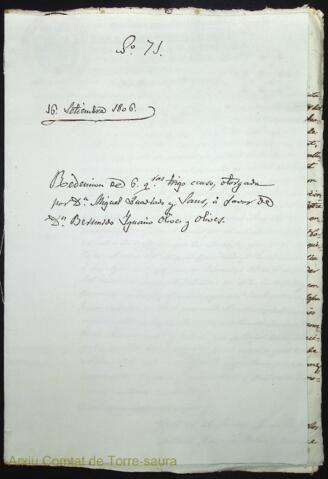 Nº 71.
16. Setiembre 1806.
Redencion de 6. q.ras trigo censo, otorgada
por Dn. Miguel Quadrado y Sans, á favor de
Dn. Bernardo Ignacio Olives y Olives.
Arxiu Comtat de Torre-saura